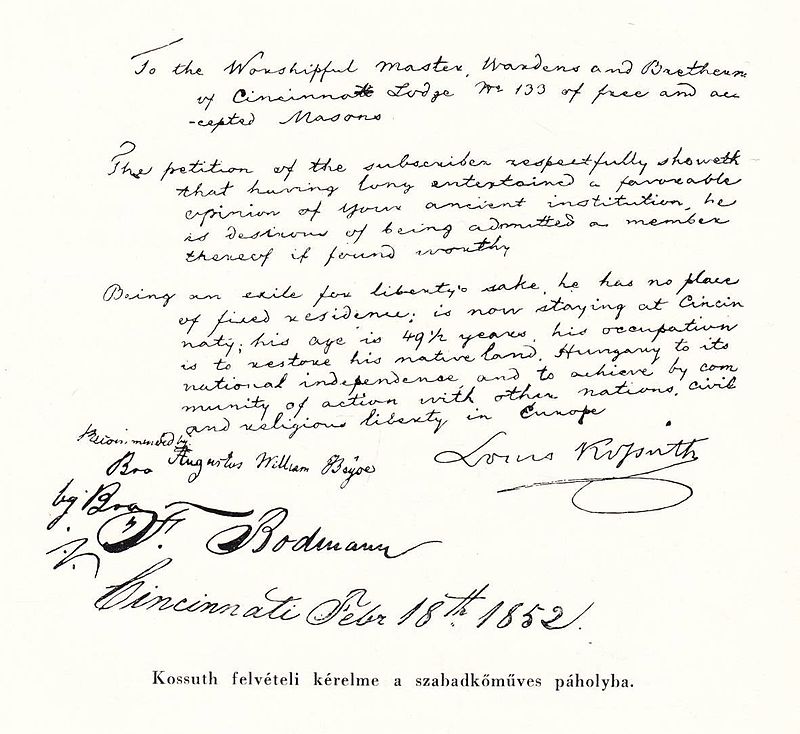 To the Worshipful Master, Wardens and Bretheren
of Cincinnati Lodge No 133 of free and ac
-cepted Masons
The petition of the subscriber respectfully showeth
that having long entertained a favorable
opinion of your ancient institution, he
is desirous of being admitted a member
thereof if found worthy
Being an exile for liberty's sake, he has no place
of fixed residence; is now staying at Cincin
naty; his age is 49 1/2 years, his occupation
is to restore his native land, Hungary to its
national independence and to achieve by com
munity of action with other nations, civil
and religious liberty in Europe
by
Bro Augustus William
Louis Kossuth
by Bro
F. Bodmann
Cincinnati Febr 18th 1852.
Kossuth felvételi kérelme a szabadkőműves páholyba.